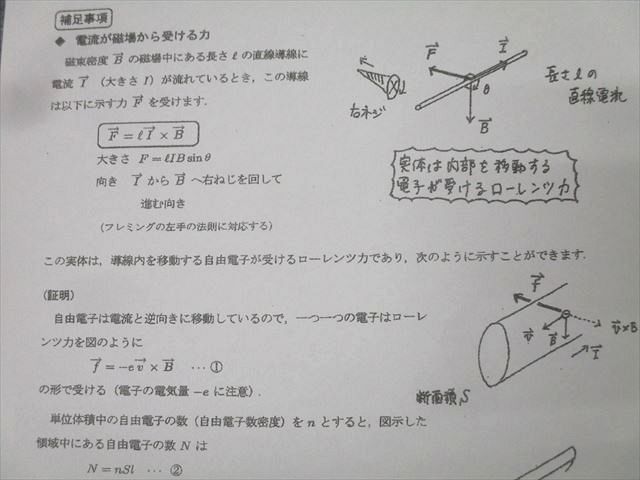 補足事項
◆ 電流が磁場から受ける力
磁束密度 B⃗ の磁場中にある長さ ℓ の直線導線に
電流 I⃗ (大きさ I) が流れているとき,この導線
は以下に示す力 F⃗ を受けます.
F⃗ = ℓI⃗ × B⃗
大きさ F = ℓIB sin θ
向き I⃗ から B⃗ へ右ねじを回して
進む向き
(フレミングの左手の法則に対応する)
F⃗
I⃗
θ
B⃗
右ネジ
長さ ℓ の
直線電流
実体は内部を移動する
電子が受けるローレンツ力
この実体は,導線内を移動する自由電子が受けるローレンツ力であり,次のように示すことができます.
(証明)
自由電子は電流と逆向きに移動しているので,一つ一つの電子はローレ
ンツ力を図のように
f⃗ = −ev⃗ × B⃗ ⋯ ①
の形で受ける (電子の電気量 −e に注意).
単位体積中の自由電子の数 (自由電子数密度) を n とすると,図示した
領域中にある自由電子の数 N は
N = nSl ⋯ ②
f⃗
v⃗
B⃗
v⃗×B⃗
I⃗
断面積 S